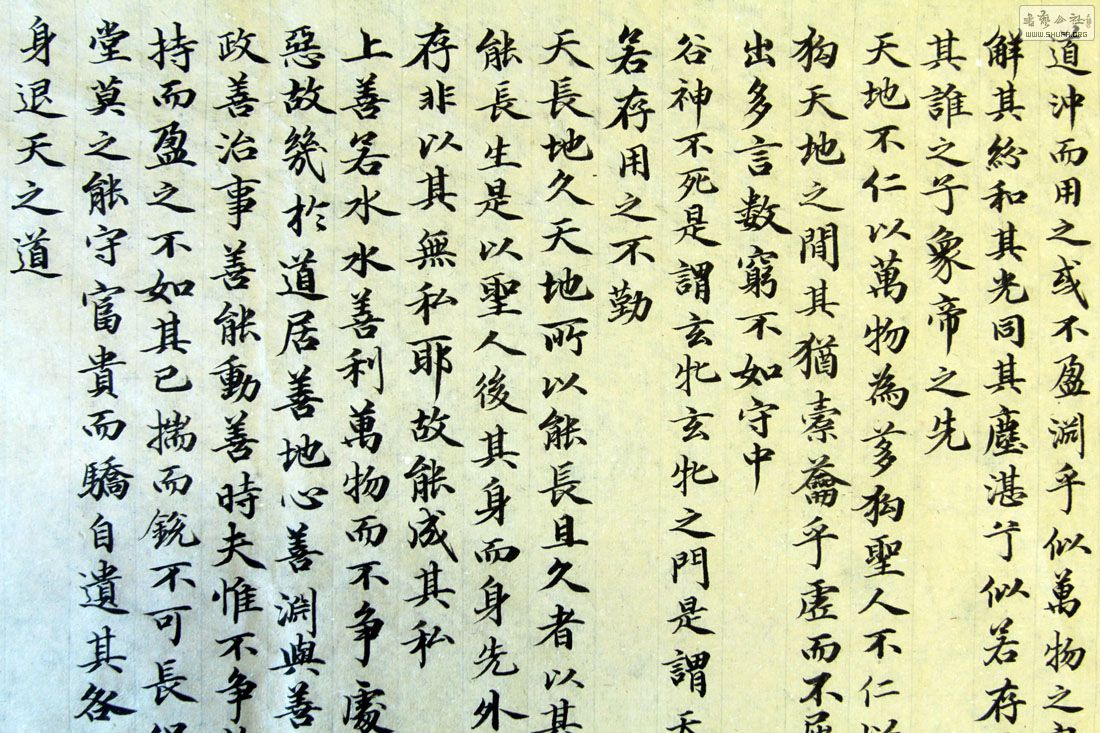 道沖而用之或不盈淵乎似萬物之
解其紛和其光同其塵湛兮似若存
其誰之子象帝之先
天地不仁以萬物為芻狗聖人不仁以
狗天地之間其猶橐籥乎虛而不屈
出多言數窮不如守中
谷神不死是謂玄牝玄牝之門是謂天
若存用之不勤
天長地久天地所以能長且久者以其
能長生是以聖人後其身而身先外
存非以其無私耶故能成其私
上善若水水善利萬物而不争處
惡故幾於道居善地心善淵與善
政善治事善能動善時夫惟不争
持而盈之不如其已揣而銳不可長
堂莫之能守富貴而驕自遺其咎
身退天之道
WWW.SHUFA.ORG